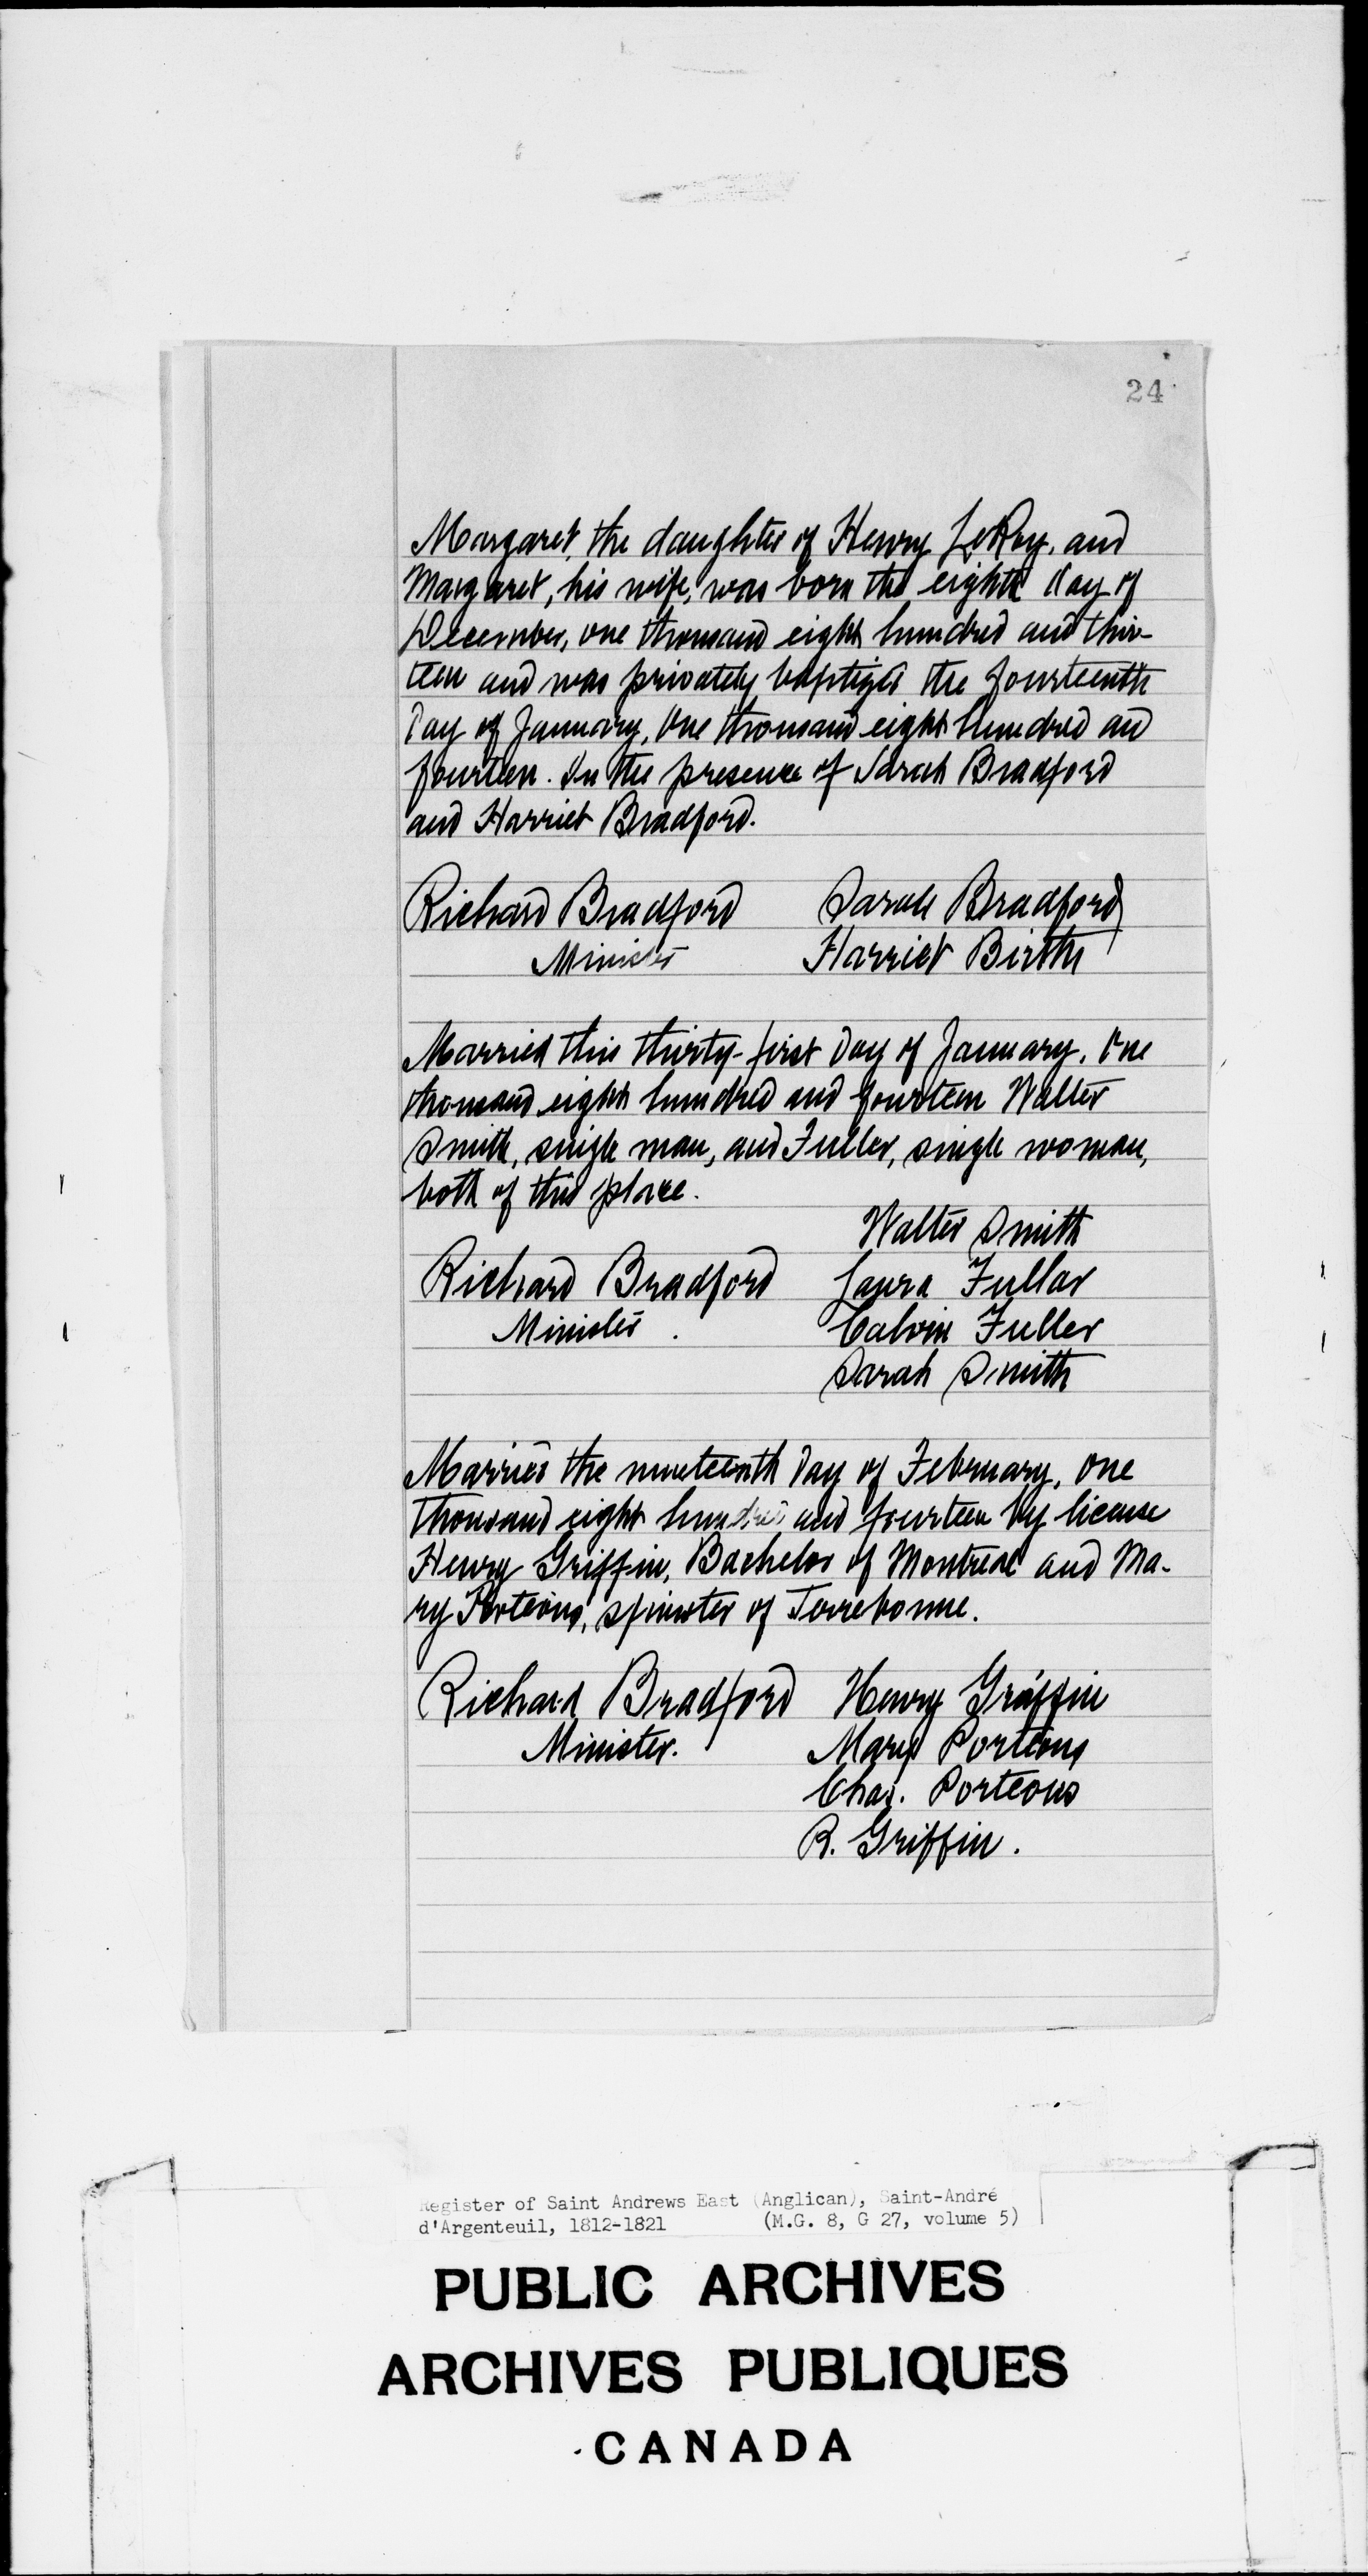 24
Margaret, the daughter of Henry LeRoy, and
Margaret, his wife, was born the eighth day of
December, one thousand eight hundred and thir-
teen and was privately baptized the fourteenth
day of January, one thousand eight hundred and
fourteen. In the presence of Sarah Bradford
and Harriet Bradford.
Richard Bradford Sarah Bradford
Minister Harriet Birth
Married this thirty-first day of January, one
thousand eight hundred and fourteen Walter
Smith, single man, and Fuller, single woman,
both of this place.
Walter Smith
Richard Bradford Laura Fullar
Minister. Calvin Fuller
Sarah Smith
Married the nineteenth day of February, one
thousand eight hundred and fourteen by license
Henry Griffin, Bachelor of Montreal and Ma-
ry Porteous, spinster of Terrebonne.
Richard Bradford Henry Griffin
Minister. Mary Porteous
Chas. Porteous
R. Griffin.
Register of Saint Andrews East (Anglican), Saint-André
d'Argenteuil, 1812-1821 (M.G. 8, G 27, volume 5)
PUBLIC ARCHIVES
ARCHIVES PUBLIQUES
CANADA